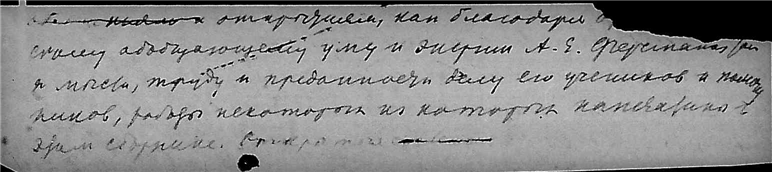 и открытием, как благодаря
скому обобщающему уму и энергии А. Е. Ферсмана,
и мысли, труду и преданности делу его учеников и помощ
ников, работы некоторых из которых напечатаны в
этом сборнике.